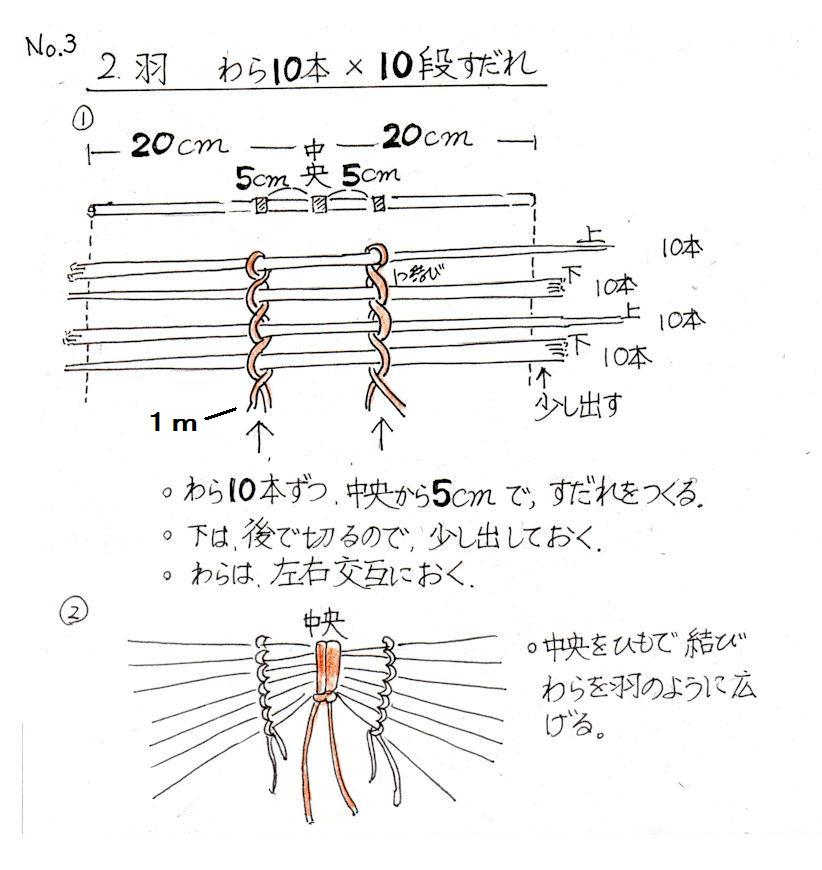 No.3
2. 羽 わら10本 × 10段すだれ
①
20cm 中央 20cm
5cm 5cm
上 10本
1つ結び 下 10本
上 10本
下 10本
少し出す
1m
○ わら10本ずつ、中央から5cmで、すだれをつくる.
○ 下は、後で切るので、少し出しておく.
○ わらは、左右交互におく.
②
中央
○ 中央をひもで結び
わらを羽のように広
げる。